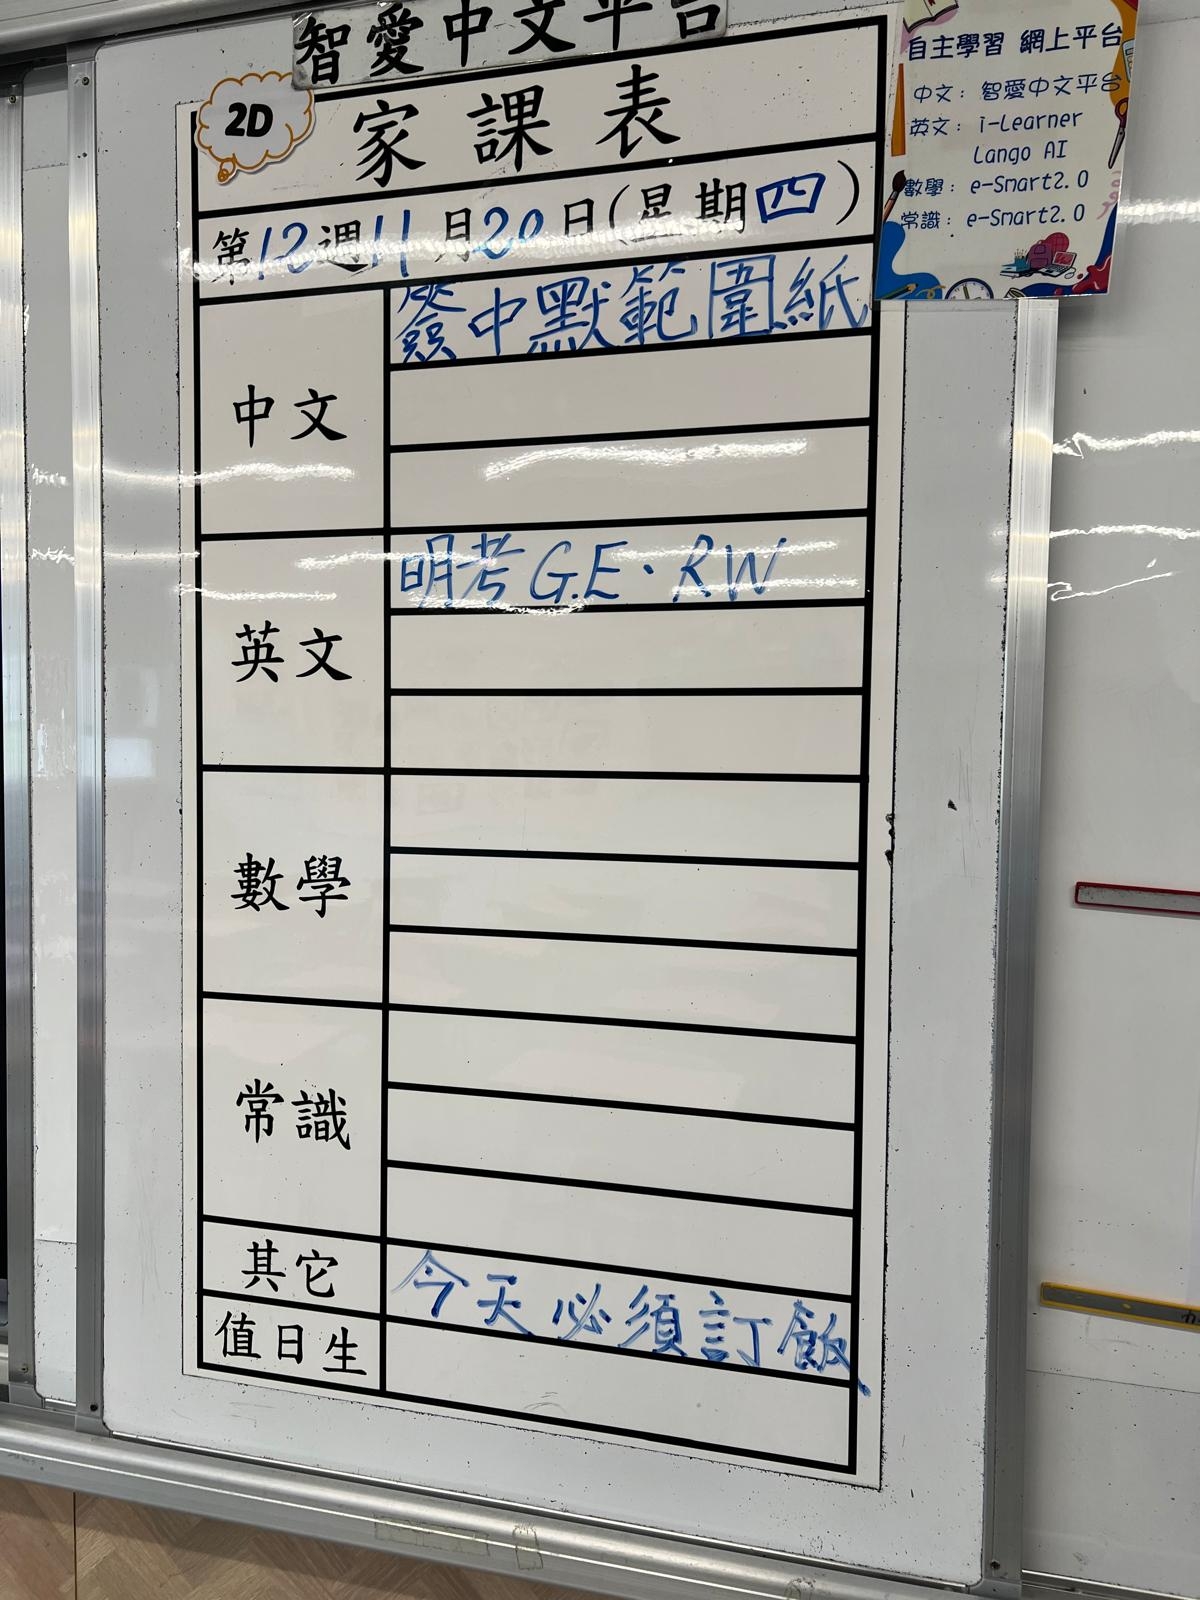 智愛中文平台
2D
家課表
第12週11月20日(星期四)
中文
簽中默範圍紙
英文
明考G.E.RW
數學
常識
其它
今天必須訂飯
值日生
自主學習 網上平台
中文：智愛中文平台
英文：i-Learner
Lango AI
數學：e-Smart2.0
常識：e-Smart2.0